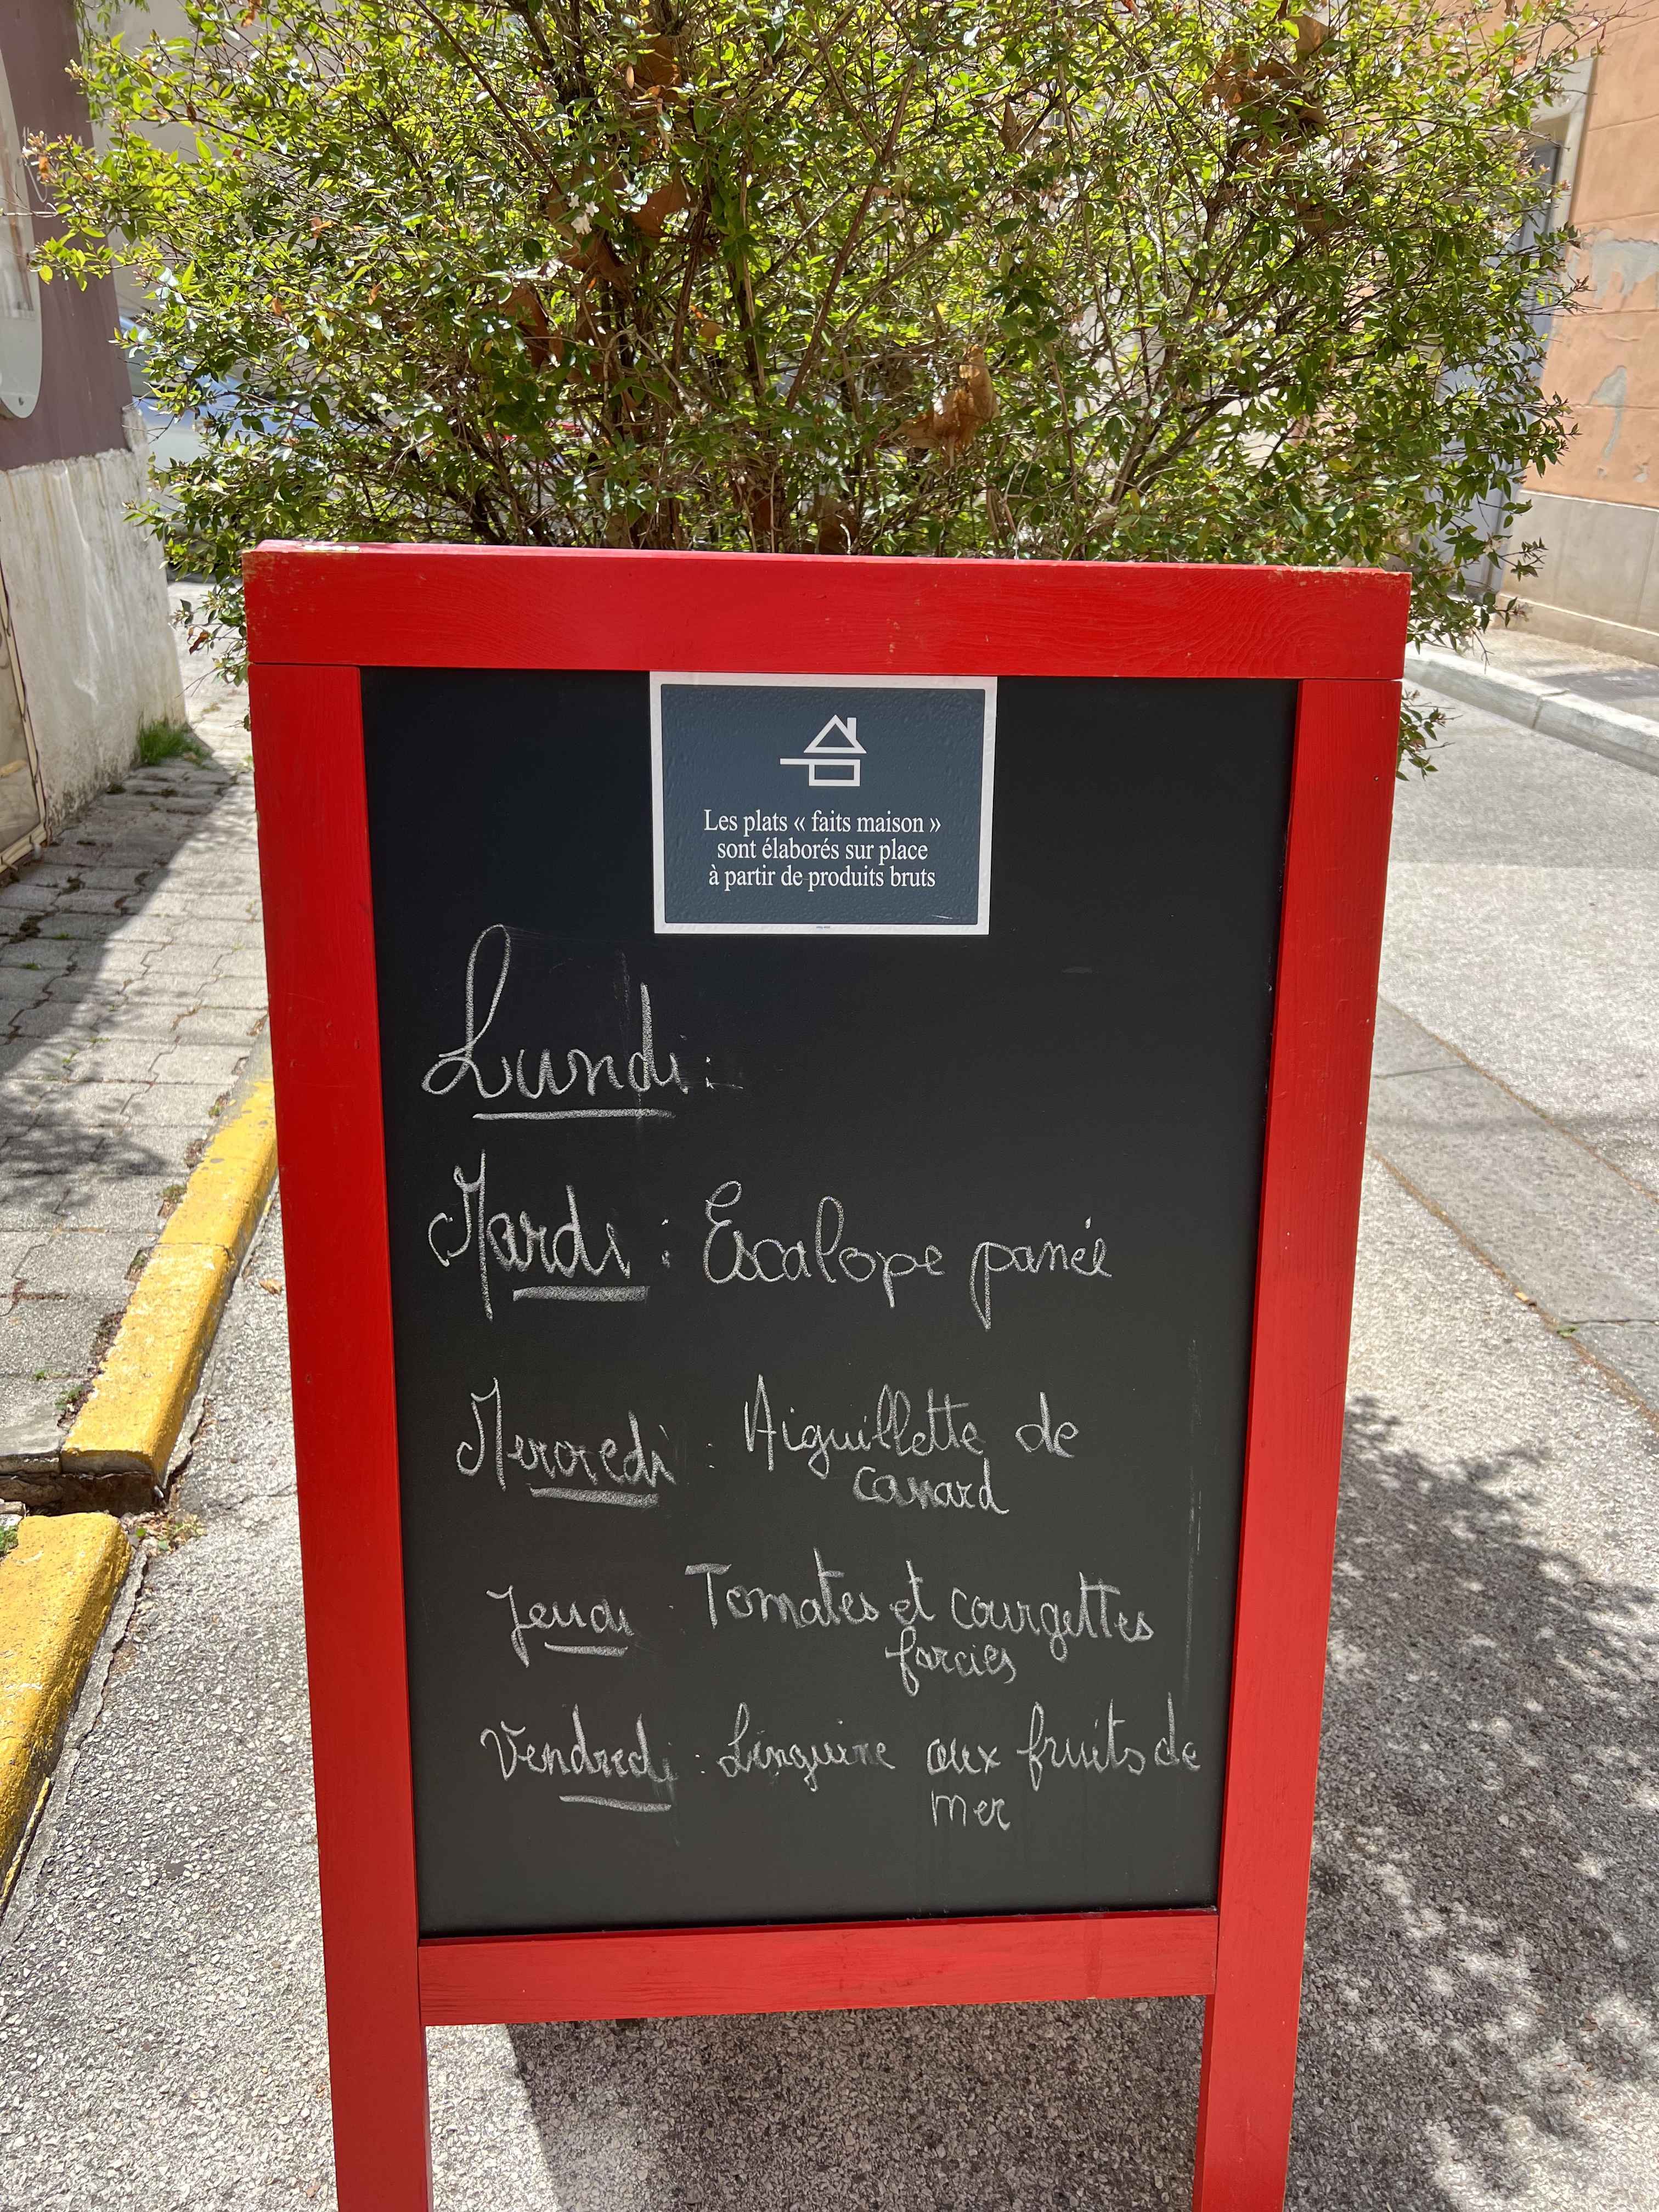 Les plats « faits maison »
sont élaborés sur place
à partir de produits bruts
Lundi :
Mardi : Escalope panée
Mercredi : Aiguillette de
canard
Jeudi : Tomates et courgettes
farcies
Vendredi : Linguine aux fruits de
mer